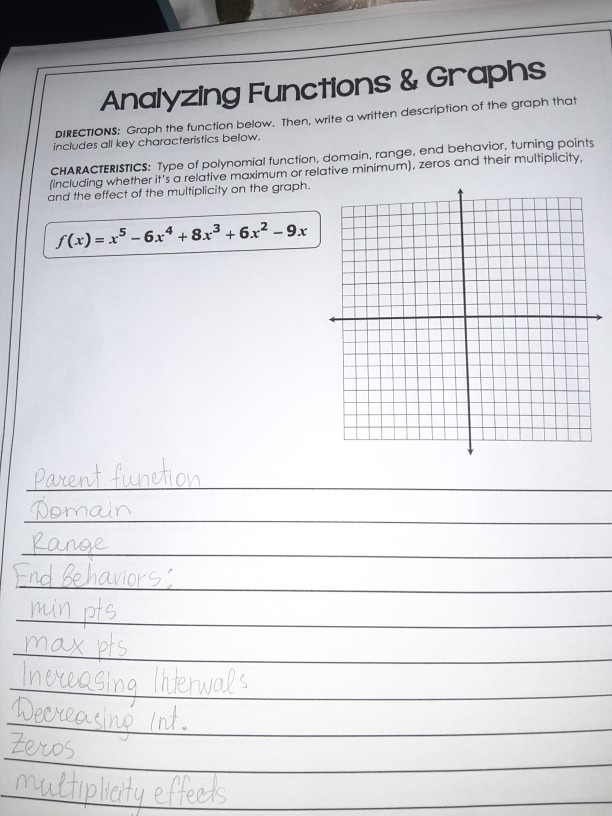 Analyzing Functions & Graphs
DIRECTIONS: Graph the function below. Then, write a written description of the graph that
includes all key characteristics below.
CHARACTERISTICS: Type of polynomial function, domain, range, end behavior, turning points
(including whether it's a relative maximum or relative minimum), zeros and their multiplicity,
and the effect of the multiplicity on the graph.
f(x) = x⁵ – 6x⁴ + 8x³ + 6x² – 9x
Parent function
Domain
Range
End Behaviors:
min pts
max pts
Increasing Intervals
Decreasing Int.
Zeros
multiplicity effects